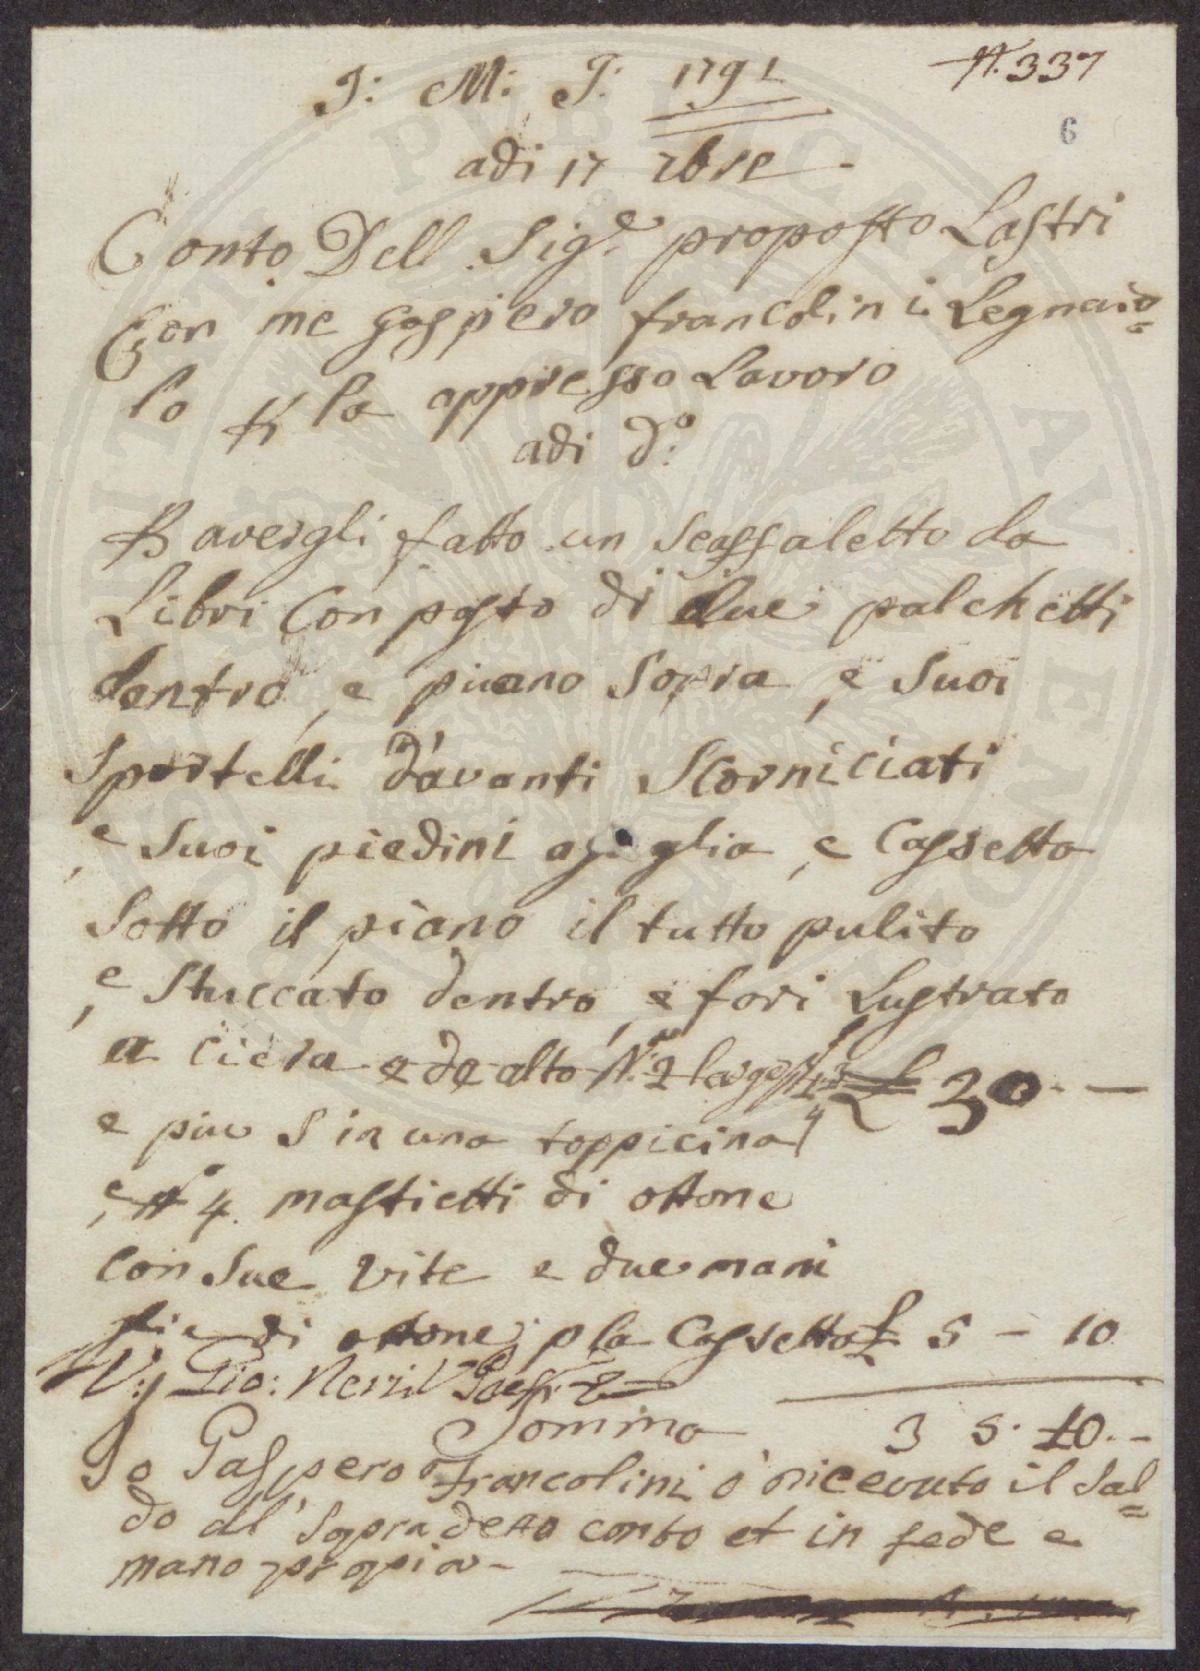 J: M: J: 1791
N. 337
6
adi 17 7bre
Conto Dell Sig.e proposto Lastri
Con me Gaspero francolini Legnaio=
lo p la appresso Lavoro
adi d.o
P avergli fatto un scaffaletto da
Libri Con posto di due palchetti
dentro, e piano Sopra, e Suoi
Sportelli d'avanti Scorniciati
, e Suoi piedini a glia, e Cassetta
Sotto il piano il tutto pulito
, e Stuccato dentro, e fori Lustrato
a ciera e de alto N. 2 largo £ 30 - —
e piu S in una toppicina
, e N 4 mastietti di ottone
con Sue Vite e due mani
glie di ottone p la Cassetta £ 5 - 10
Gio: Neri
Somma 3 5. 10. -
Io Gaspero Francolini ò ricevuto il Sal=
do del sopra detto conto et in fede
mano propia -